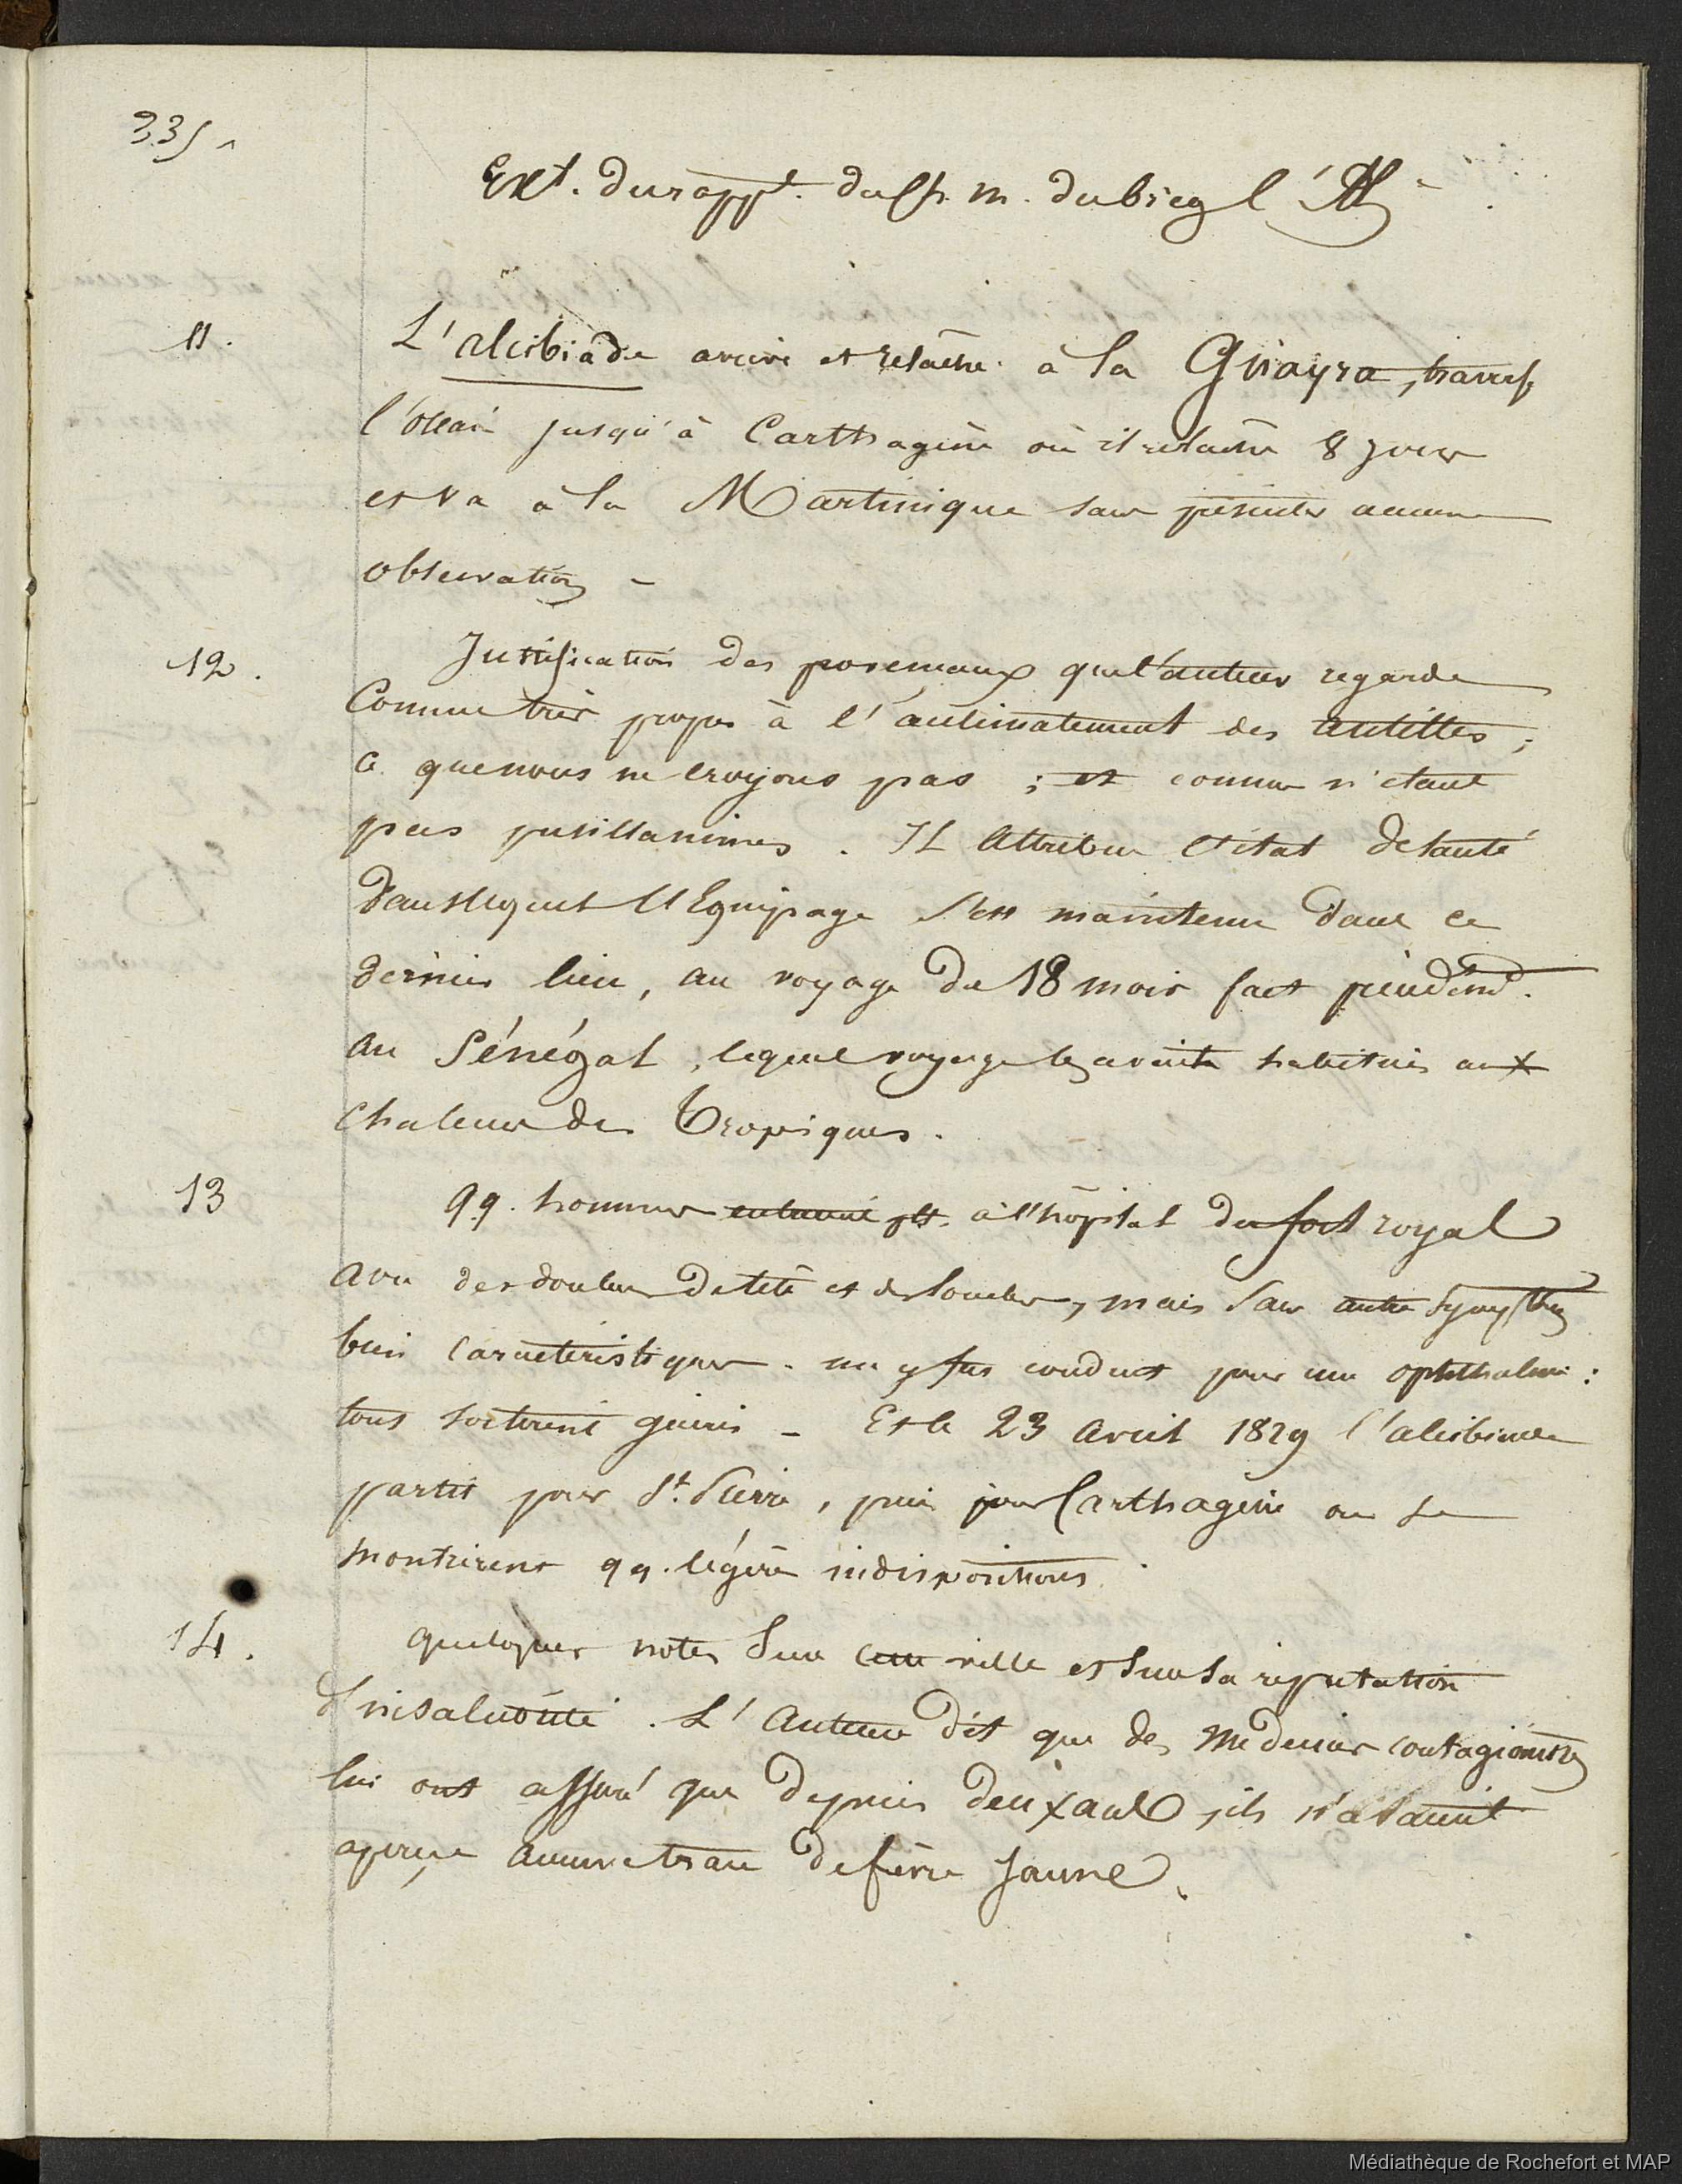 335
Ext. du rappt. du ch. m. du brig l'Al
11.
L'alcibiade arrive et relâche à la Guayra, traverse
l'océan jusqu'à Carthagène où il relâche 8 jours
et va à la Martinique sans présenter aucune
observation -
12.
Justification des provençaux que l'auteur regarde
Comme très propres à l'acclimatement des antilles;
ce que nous ne croyons pas ; et comme n'étant
pas pusillanimes. Il attribue l'état de santé
dans lequel l'Equipage s'est maintenu dans ce
dernier lieu, au voyage de 18 mois fait précédt.
au Sénégal, lequel voyage les avait habitués aux
chaleurs des Tropiques.
13
qq. hommes à l'hôpital du fort royal
avec des douleurs de tête et des lombes, mais sans autre symptôme
bien caractéristique. un y fut conduit pour une ophthalmie :
tous sortirent guéris - Et le 23 avril 1829 l'alcibiade
partit pour St. Pierre, puis pour Carthagène où se
montrèrent qq. légères indispositions.
14.
quelques notes sur cette ville et sur sa réputation
d'insalubrité. L'auteur dit que des médecins contagionistes
lui ont assuré que depuis deux ans ils n'avaient
aperçu aucune trace de fièvre jaune.
Médiathèque de Rochefort et MAP